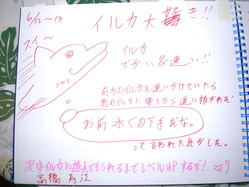 6/12~13
イルカ大好き!!
スイ~
イルカ
でかい&速い!!
前方のイルカを追いかけていたら
別のイルカに後ろから追い抜かれた!
お前泳ぐの下手だな。
って言われた気がした。
次はイルカに遊んでもらえるまでレベルUPするぞ!
高橋